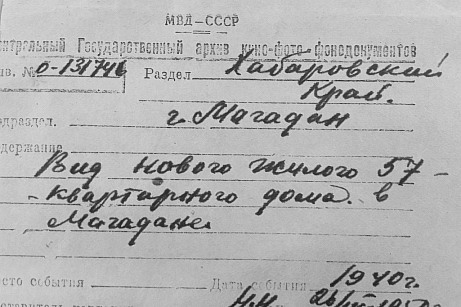 МВД–СССР
ентральный Государственный архив кино-фото-фонодокументов
ив. № 0-131746 Раздел Хабаровский
Край.
одраздел. г. Магадан
одержание
Вид нового жилого 57-
-квартирного дома в
Магадане.
есто события Дата события 1940г.